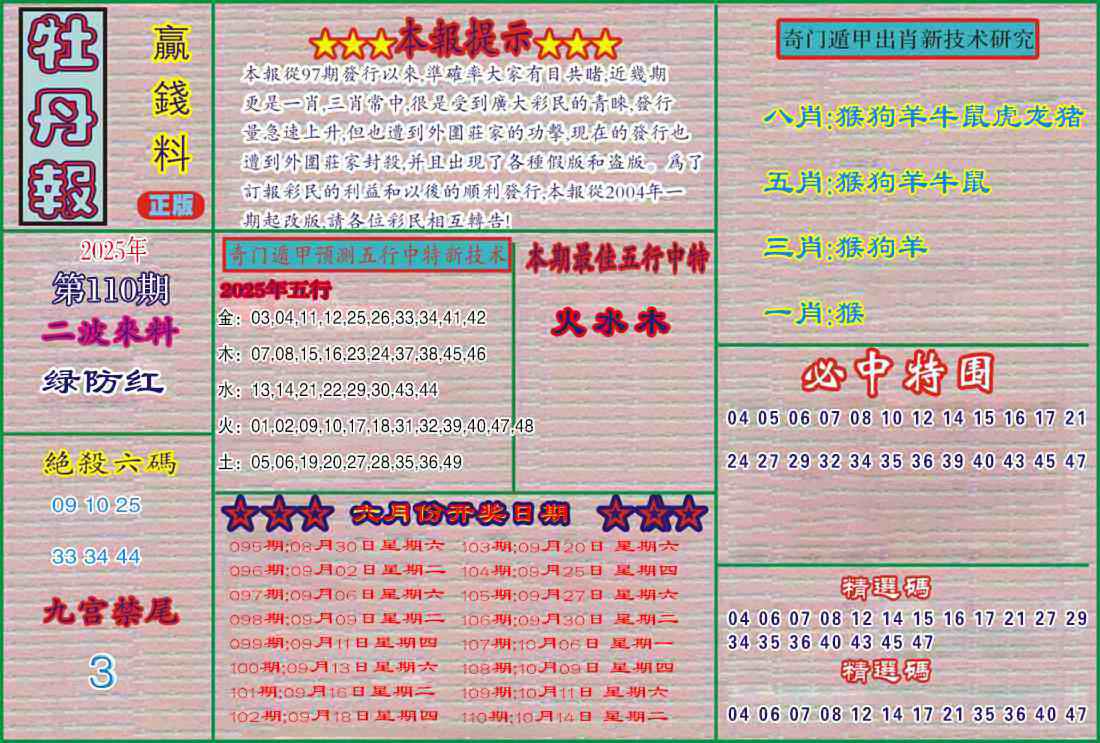 牡丹報
贏錢料
正版
★★★本報提示★★★
本報從97期發行以來,準確率大家有目共睹,近幾期
更是一肖,三肖常中,很是受到廣大彩民的青睞,發行
量急速上升,但也遭到外圍莊家的功擊,現在的發行也
遭到外圍莊家封殺,并且出現了各種假版和盗版。爲了
訂報彩民的利益和以後的順利發行,本報從2004年一
期起改版,請各位彩民相互轉告!
奇门遁甲出肖新技术研究
八肖:猴狗羊牛鼠虎龙猪
五肖:猴狗羊牛鼠
三肖:猴狗羊
一肖:猴
2025年
第110期
二波來料
绿防红
奇门遁甲预测五行中特新技术
2025年五行
金：03,04,11,12,25,26,33,34,41,42
木：07,08,15,16,23,24,37,38,45,46
水：13,14,21,22,29,30,43,44
火：01,02,09,10,17,18,31,32,39,40,47,48
土：05,06,19,20,27,28,35,36,49
本期最佳五行中特
火水木
必中特围
04 05 06 07 08 10 12 14 15 16 17 21
24 27 29 32 34 35 36 39 40 43 45 47
絕殺六碼
09 10 25
33 34 44
九宫禁尾
3
☆☆☆ 六月份开奖日期 ☆☆☆
095期;08月30日星期六 103期;09月20日 星期六
096期;09月02日星期二 104期;09月25日 星期四
097期;09月06日星期六 105期;09月27日 星期六
098期;09月09日星期二 106期;09月30日 星期二
099期;09月11日星期四 107期;10月06日 星期一
100期;09月13日星期六 108期;10月09日 星期四
101期;09月16日星期二 109期;10月11日 星期六
102期;09月18日星期四 110期;10月14日 星期二
精選碼
04 06 07 08 12 14 15 16 17 21 27 29
34 35 36 40 43 45 47
精選碼
04 06 07 08 12 14 17 21 35 36 40 47